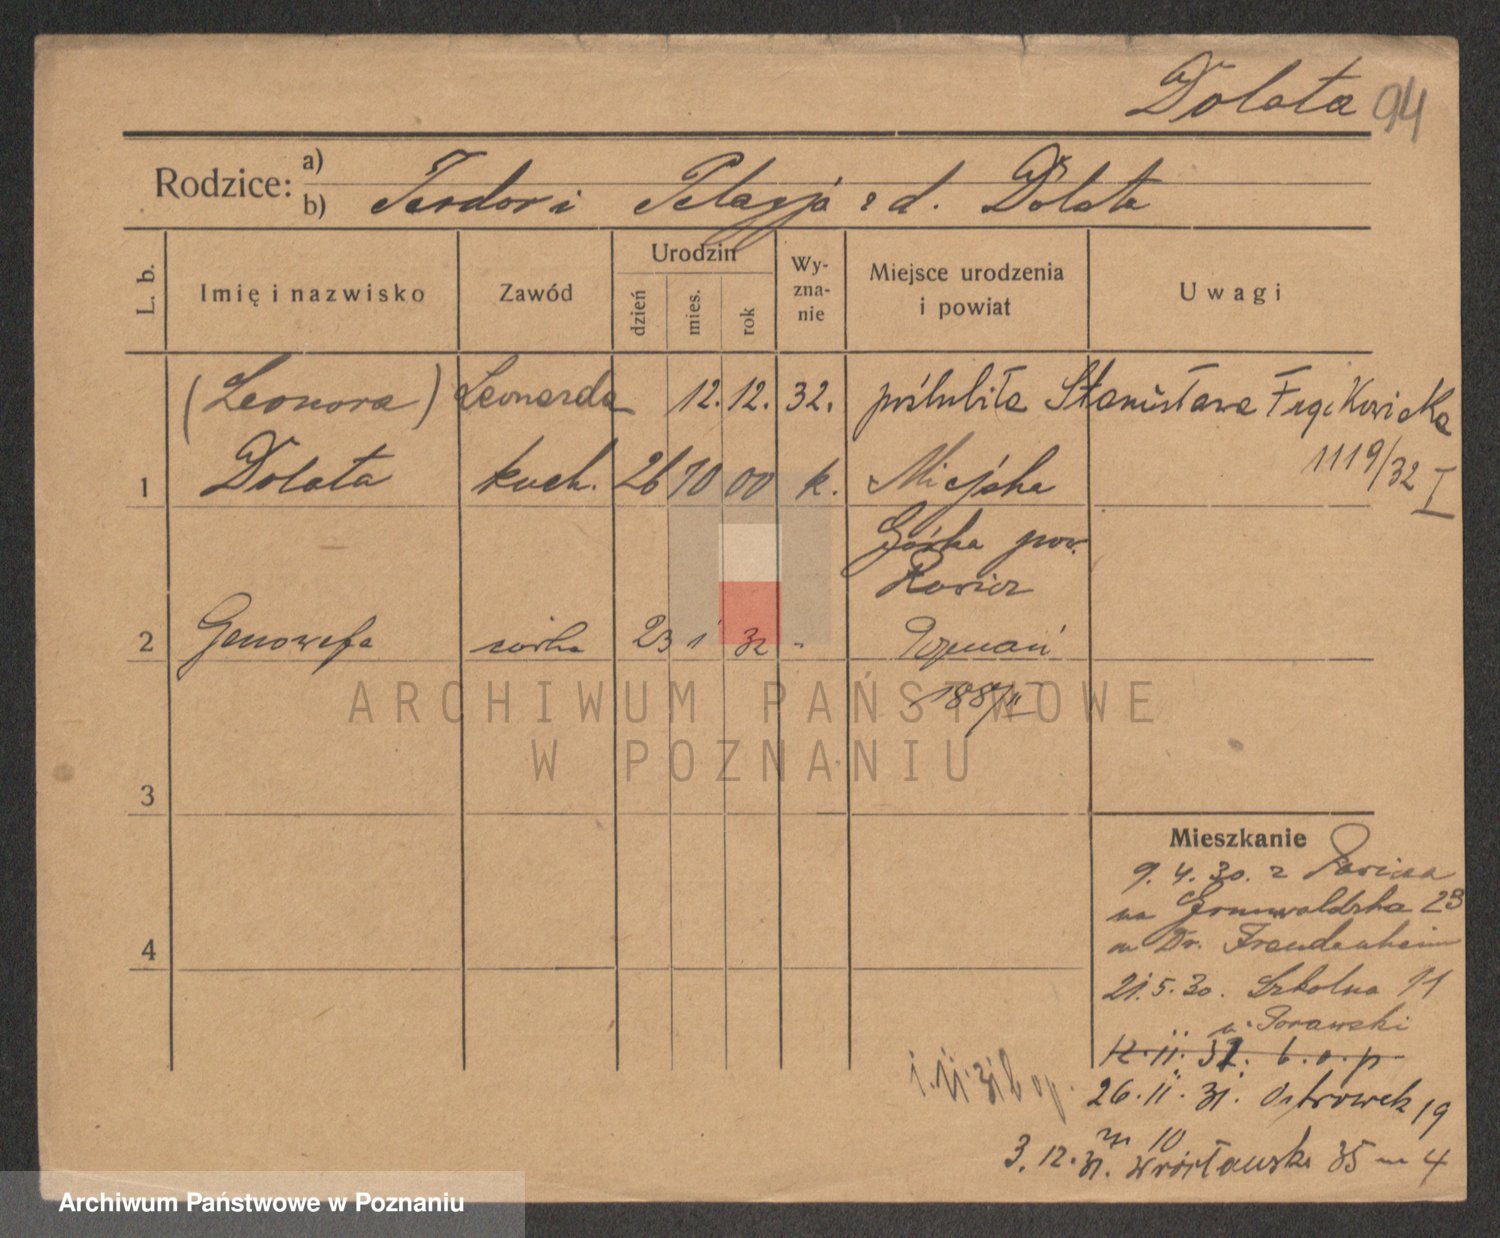 Dolata 94
Rodzice: a)
b) Teodor i Pelagja z d. Dolata
L. b.
Imię i nazwisko
Zawód
Urodzin
dzień
mies.
rok
Wy-
zna-
nie
Miejsce urodzenia
i powiat
Uwagi
(Leonora) Leonarda 12. 12. 32. poślubiła Stanisława
1119/32 I
1 Dolata kuch. 26 10 00 k. Miejska
Górka pow.
Rawicz
2 Genowefa córka 23 1 32 - Poznań
188/II
ARCHIWUM PAŃSTWOWE
W POZNANIU
3
4
Mieszkanie
9. 4. 30. z
na Grunwaldzka 23
Dr. Freudenheim
21. 5. 30. Szkolna 11
12. 11. 31. b. o. p
26. 11. 31. Ostrówek 19
m 10
3. 12. 31. Wrocławska 35 m 4
Archiwum Państwowe w Poznaniu